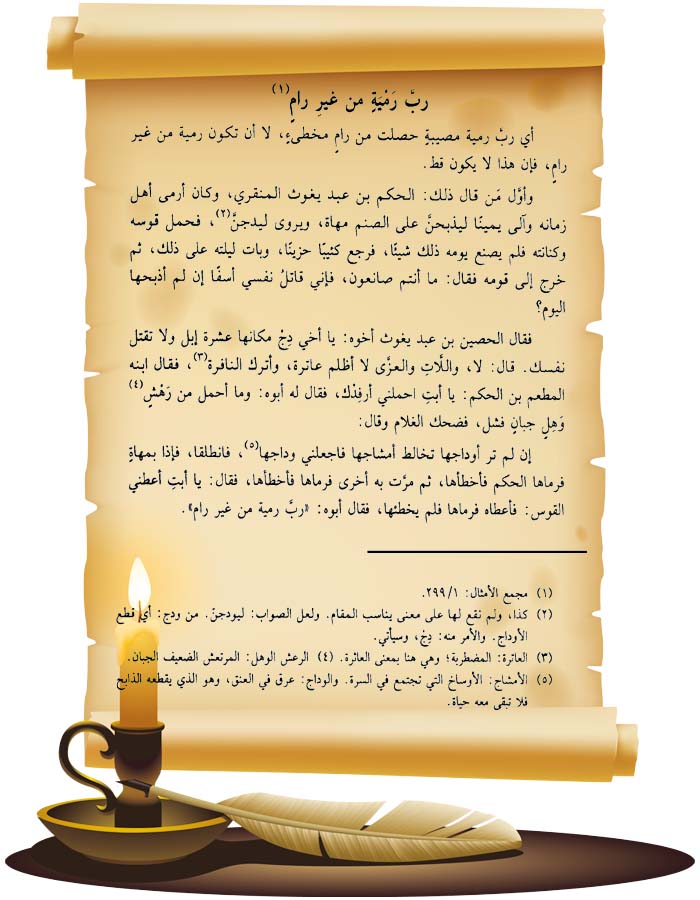 ربَّ رَمْيَةٍ من غيرِ رامٍ(١)
أي ربَّ رمية مصيبةٍ حصلت من رامٍ مخطىءٍ، لا أن تكون رمية من غير
رامٍ، فإن هذا لا يكون قط.
وأوَّل مَن قال ذلك: الحكم بن عبد يغوث المنقري، وكان أرمى أهل
زمانه وآلى يمينًا ليذبحنَّ على الصنم مهاة، ويروى ليدجنَّ(٢)، فحمل قوسه
وكنانته فلم يصنع يومه ذلك شيئًا، فرجع كئيبًا حزينًا، وبات ليلته على ذلك، ثم
خرج إلى قومه فقال: ما أنتم صانعون، فإني قاتلُ نفسي أسفًا إن لم أذبحها
اليوم؟
فقال الحصين بن عبد يغوث أخوه: يا أخي دِجْ مكانها عشرة إبل ولا تقتل
نفسك. قال: لا، واللَّاتِ والعزَّى لا أظلم عاترة، وأترك النافرة(٣)، فقال ابنه
المطعم بن الحكم: يا أبتِ احملني أرفِدْك، فقال له أبوه: وما أحمل من رَهْشٍ(٤)
وَهِلٍ جبانٍ فشل، فضحك الغلام وقال:
إن لم تر أوداجها تخالط أمشاجها فاجعلني وداجها(٥)، فانطلقا، فإذا بمهاةٍ
فرماها الحكم فأخطأها، ثم مرَّت به أخرى فرماها فأخطأها، فقال: يا أبتِ أعطني
القوس: فأعطاه فرماها فلم يخطئها، فقال أبوه: «ربَّ رمية من غير رام».
(١) مجمع الأمثال: ٢٩٩/١.
(٢) كذا، ولم نقع لها على معنى يناسب المقام. ولعل الصواب: ليودجنّ. من ودج: أي قطع
الأوداج. والأمر منه: دِجْ، وسيأتي.
(٣) العاترة: المضطربة؛ وهي هنا بمعنى العاثرة. (٤) الرعش الوهل: المرتعش الضعيف الجبان.
(٥) الأمشاج: الأوساخ التي تجتمع في السرة. والوداج: عرق في العنق، وهو الذي يقطعه الذابح
فلا تبقى معه حياة.